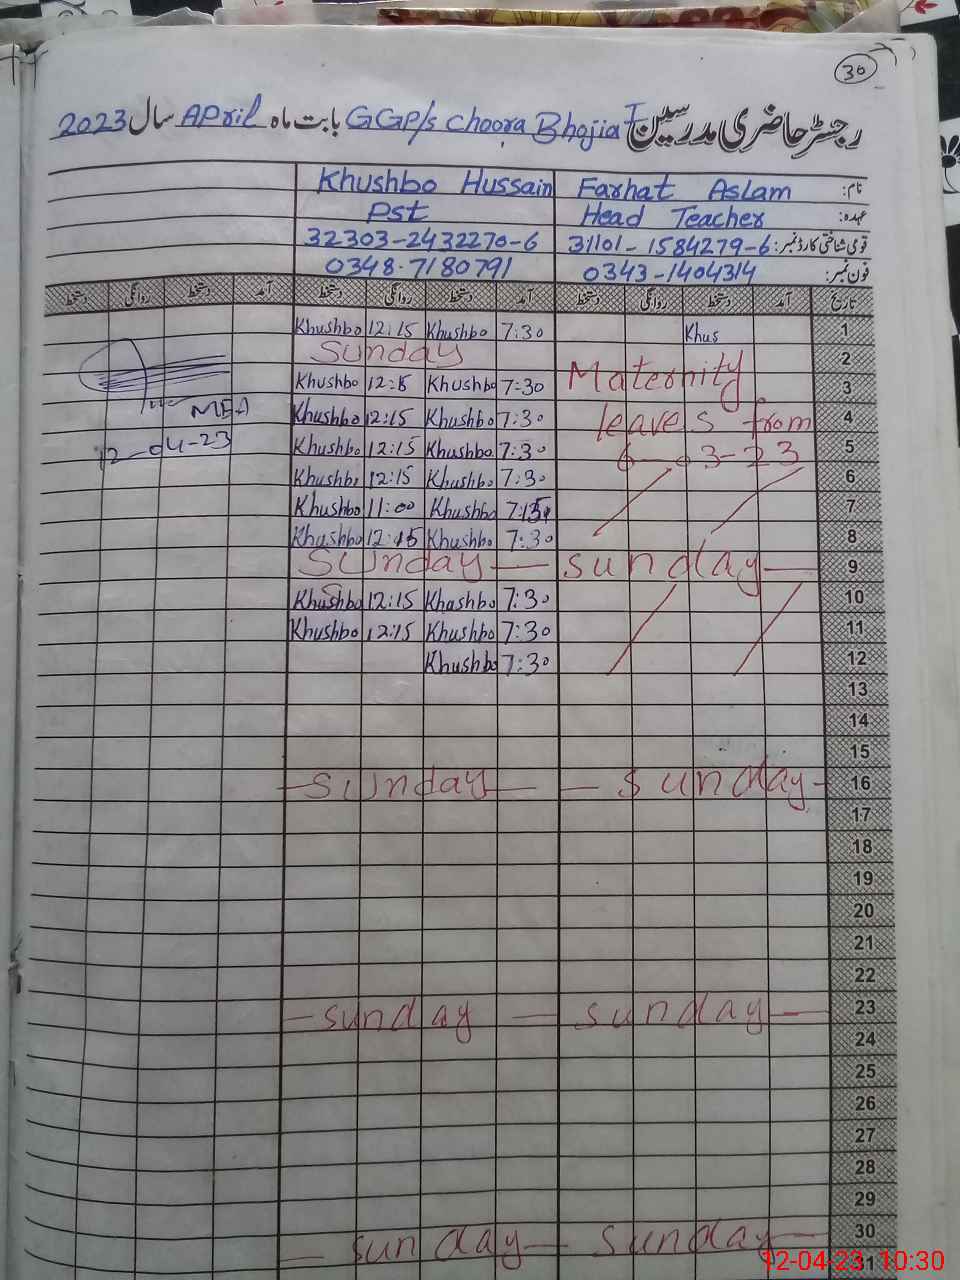 30
رجسٹر حاضری مدرسین GGP/s choora Bhojia I بابت ماہ April سال 2023
نام: Farhat Aslam Khushbo Hussain
عہدہ: Head Teacher Pst
قومی شناختی کارڈ نمبر: 31101-1584279-6 32303-2432270-6
فون نمبر: 0343-1404314 0348-7180791
تاریخ آمد دستخط روانگی دستخط آمد دستخط روانگی دستخط آمد دستخط روانگی دستخط
1 Khus 7:30 Khushbo 12:15 Khushbo
2 Sunday
3 Maternity 7:30 Khushbo Khushbo
4 leaves from 7:30 Khushbo 12:15 Khushbo
5 6-03-23 7:30 Khushbo 12:15 Khushbo
6 7:30 Khushbo 12:15 Khushbo
7 Khushbo 11:00 Khushbo
8 7:30 Khushbo 12:15 Khushbo
9 sunday Sunday
10 7:30 Khushbo 12:15 Khushbo
11 7:30 Khushbo 12:15 Khushbo
12 7:30 Khushbo
MEA
12-04-23
13
14
15
16 sunday sunday
17
18
19
20
21
22
23 sunday sunday
24
25
26
27
28
29
30 sunday sunday
31
12-04-23 10:30